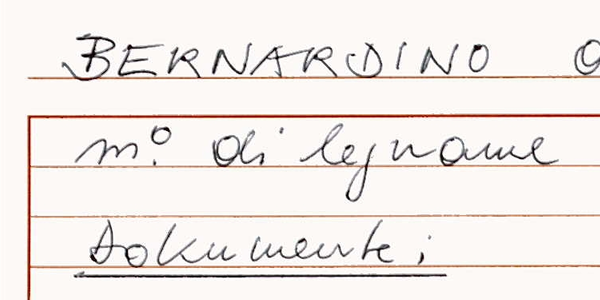 BERNARDINO
m.º di legname
Dokumente;